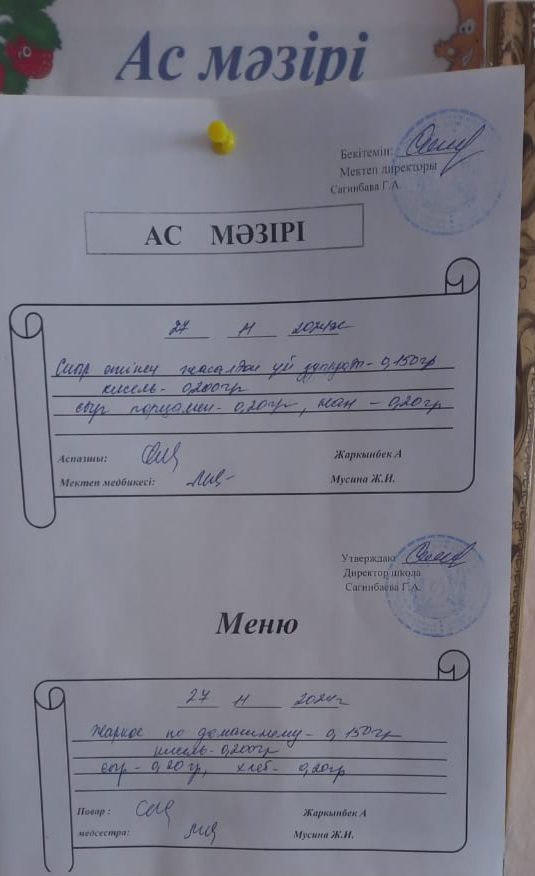 Ас мәзірі
Бекітемін:
Мектеп директоры
Сагинбава Г.А.
АС МӘЗІРІ
27 11 2024ж
Сиыр етінен жасалған үй - 0,150гр
кисель - 0,200гр
сыр порциямен - 0,20гр, нан - 0,20гр
Аспазшы: Жаркынбек А
Мектеп медбикесі: Мусина Ж.И.
Утверждаю
Директор школа
Сагинбаева Г.А.
Меню
27 11 2024г
Жаркое по домашнему - 0,150гр
кисель - 0,200гр
сыр - 0,20гр, хлеб - 0,20гр
Повар : Жаркынбек А
медсестра: Мусина Ж.И.